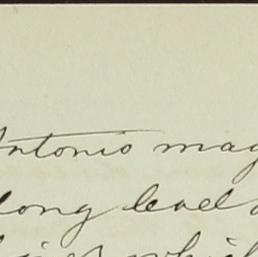 Antonio mag
long level
which